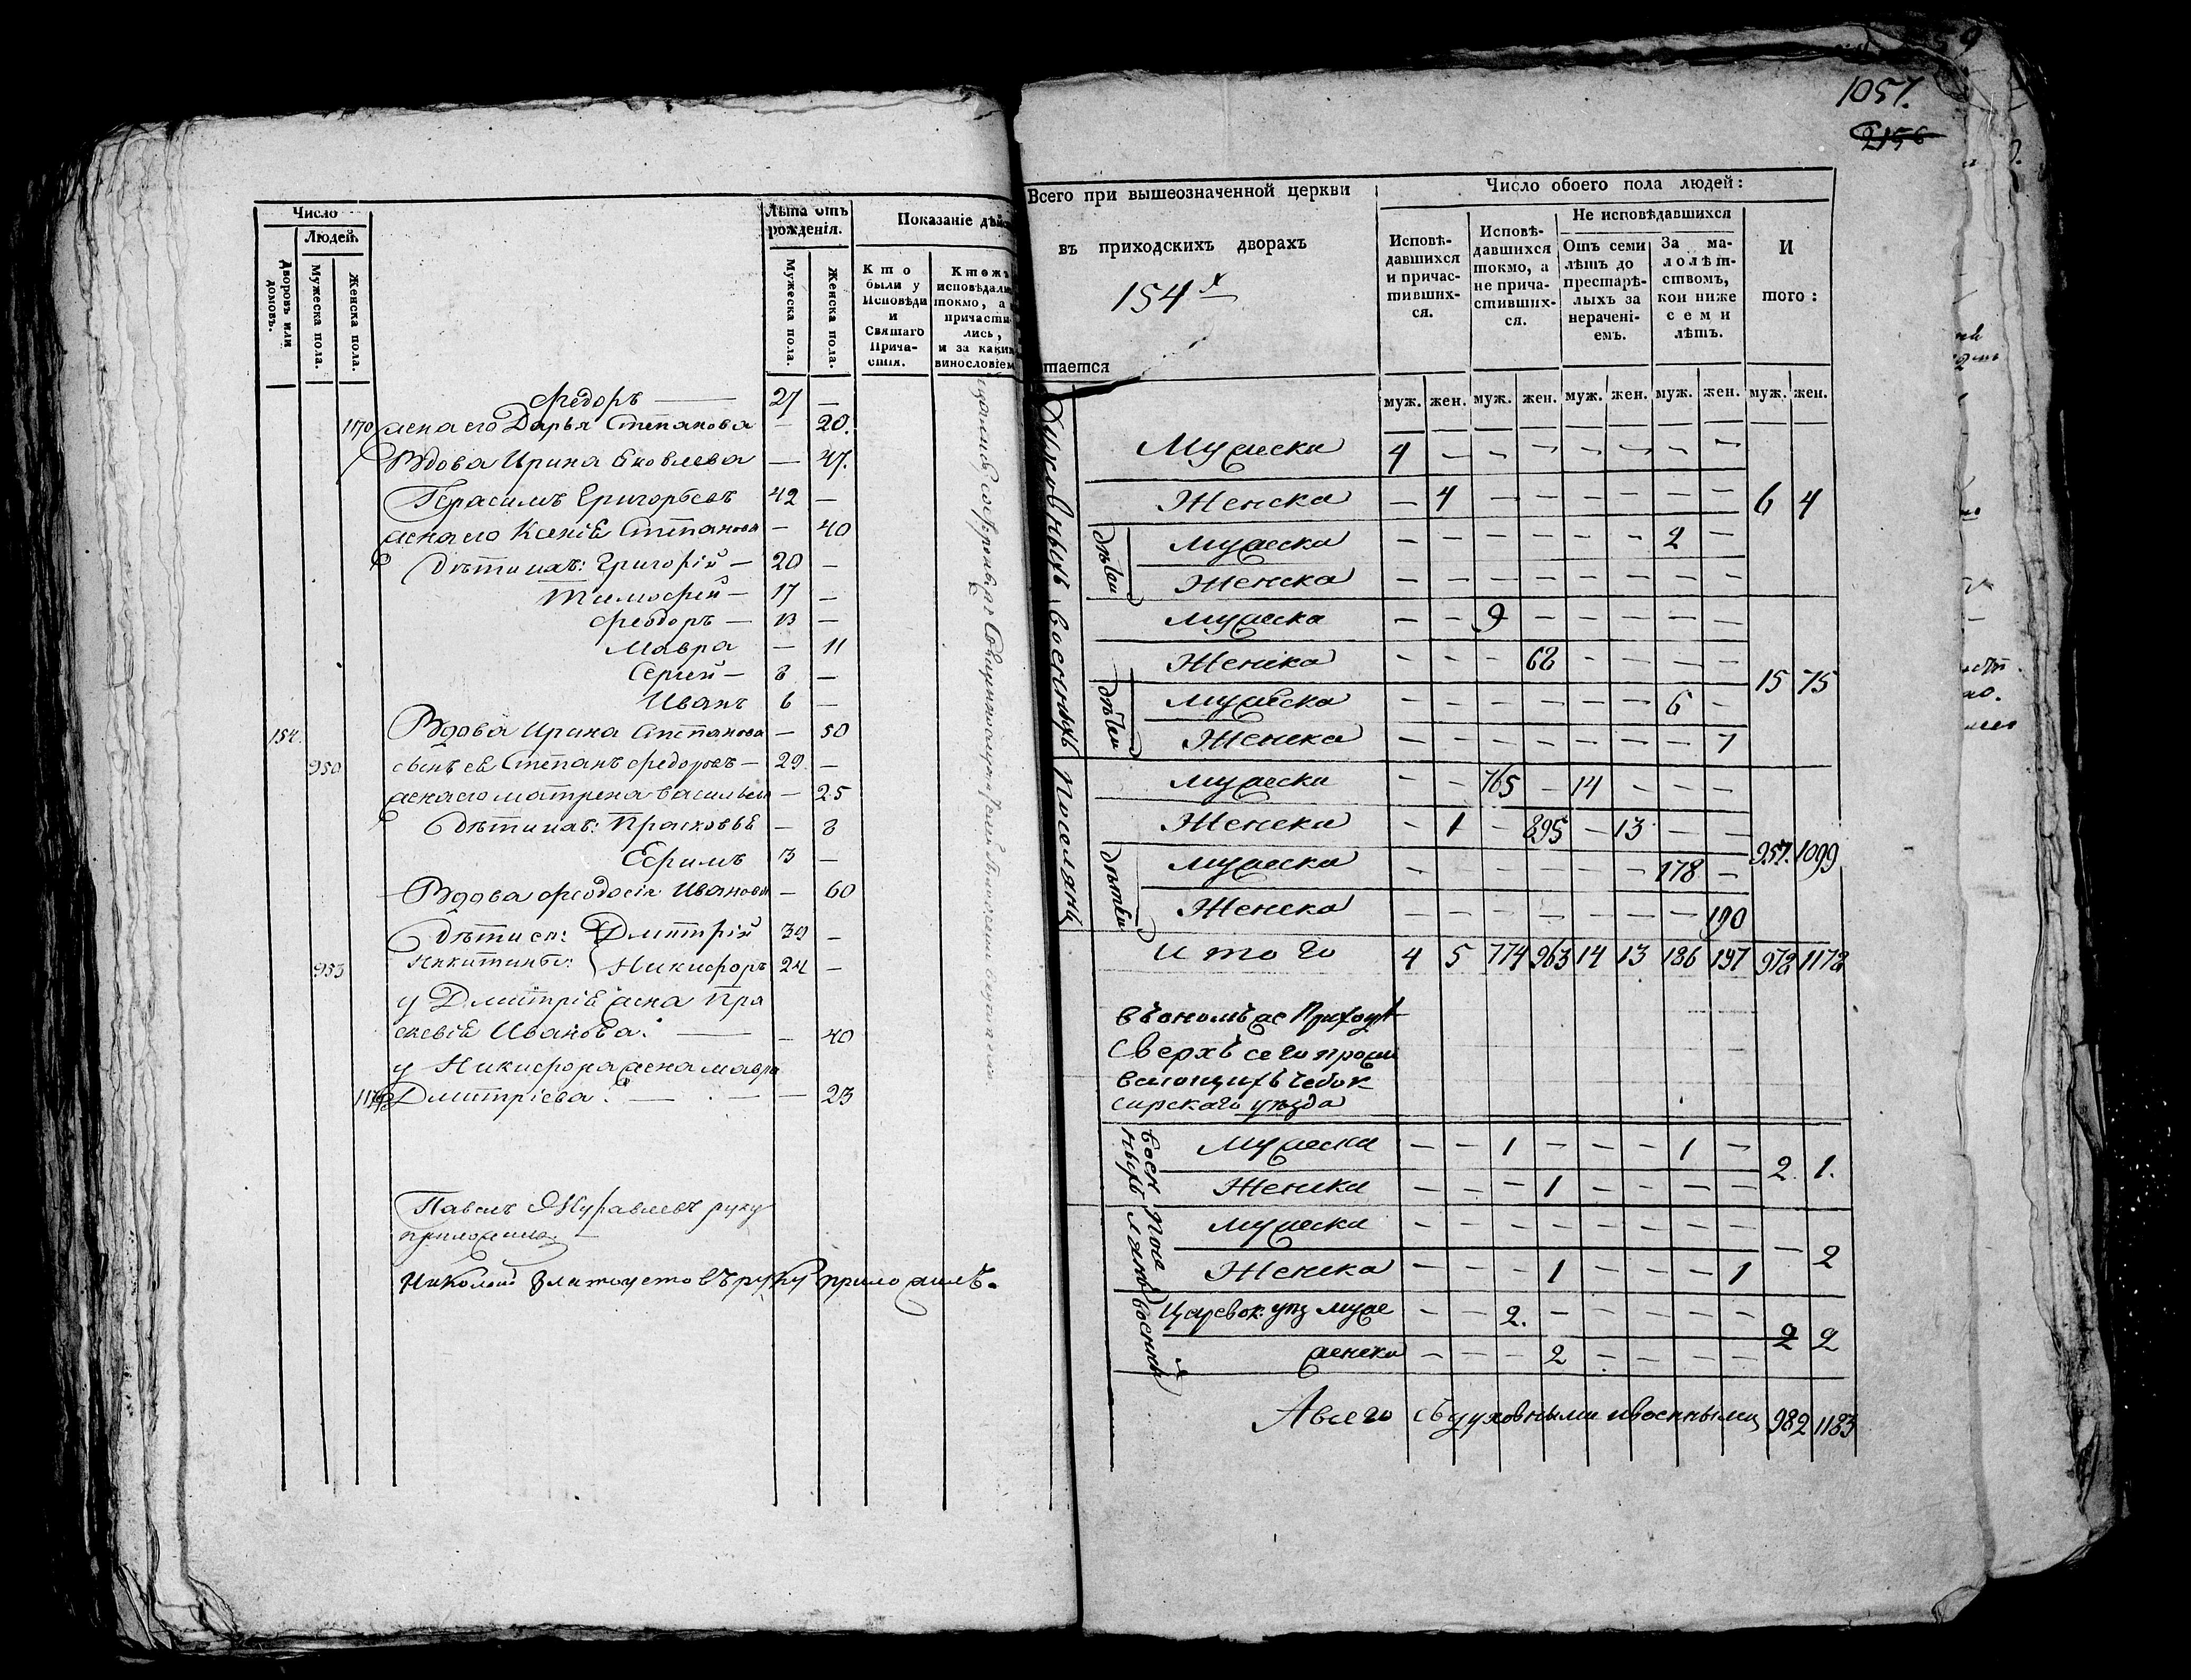 Число
Людей.
Дворовъ или домовъ.
Мужеска пола.
Женска пола.
Лѣта отъ рожденія.
Мужеска пола.
Женска пола.
Показаніе дѣйс
Кто были у Исповѣди и Святаго Прича- стія.
Ктожъ исповѣдали токмо, а причасти- лись, и за каким винословіем
Ѳедоръ — 27 —
1170 жена его Дарья Степанова — 20.
Вдова Ирина Яковлева — 47.
Герасимъ Григорьевъ 42 —
жена его Ксенія Степанова — 40
Дѣти ихъ: Григорій — 20 —
Тимоѳей — 17 —
Ѳеодоръ — 13 —
Мавра — 11
Сергей — 8 —
Иванъ 6 —
154. Вдова Ирина Степанова — 50
950 сынъ ея Степанъ Ѳедоровъ — 29 —
жена его Матрена Васильева — 25
Дѣти ихъ: Прасковья — 8
Ефимъ 3 —
Вдова Ѳеодосія Иванова — 60
Дѣти ея: Дмитрій 39 —
953 Никитины: Никифоръ 24 —
у Дмитрія жена Пра
скевія Иванова. — — 40
у Никифора жена Мавра
Дмитріева. — — 23
Павелъ Журавлевъ руку
приложилъ.
Николай Златоустовъ руку приложилъ.
1057.
2156
Всего при вышеозначенной церкви
въ приходскихъ дворахъ
154
тается
Число обоего пола людей:
Исповѣ- давшихся и причас- тивших- ся.
Исповѣ- давшихся токмо, а не прича- стивших- ся.
Не исповѣдавшихся
Отъ семи лѣтъ до престарѣ- лыхъ за нерачені- емъ.
За ма- лолѣт- ствомъ, кои ниже семи лѣтъ.
И того:
муж. жен. муж. жен. муж. жен. муж. жен. муж. жен.
Духовныхъ военныхъ поселянъ
Мужеска 4 — — — — — — —
Женска — 4 — — — — — — 6 4
дѣтей
Мужеска — — — — — — 2 —
Женска — — — — — — — —
Мужеска — — 9 — — — — —
Женска — — — 68 — — — — 15 75
дѣтей
Мужеска — — — — — — 6 —
Женска — — — — — — — 7
Мужеска — — 765 — 14 — — —
Женска — 1 — 895 — 13 — — 957. 1099
дѣтей
Мужеска — — — — — — 178 —
Женска — — — — — — — 190
Итого 4 5 774 963 14 13 186 197 978 1178
въ ономъ же приходѣ
сверхъ сего прожи
вающихъ Чебок
сарскаго уѣзда
военныхъ
Мужеска — — 1 — — — 1 — 2. 1.
Женска — — — 1 — — — —
Поселянъ
Мужеска — — — — — — — — — 2
Женска — — — 1 — — — 1
военныхъ
Царевок. уѣз муже — — 2. — — — — — 2 2
женска — — — 2 — — — —
А всего съ духовными и военными 982 1183